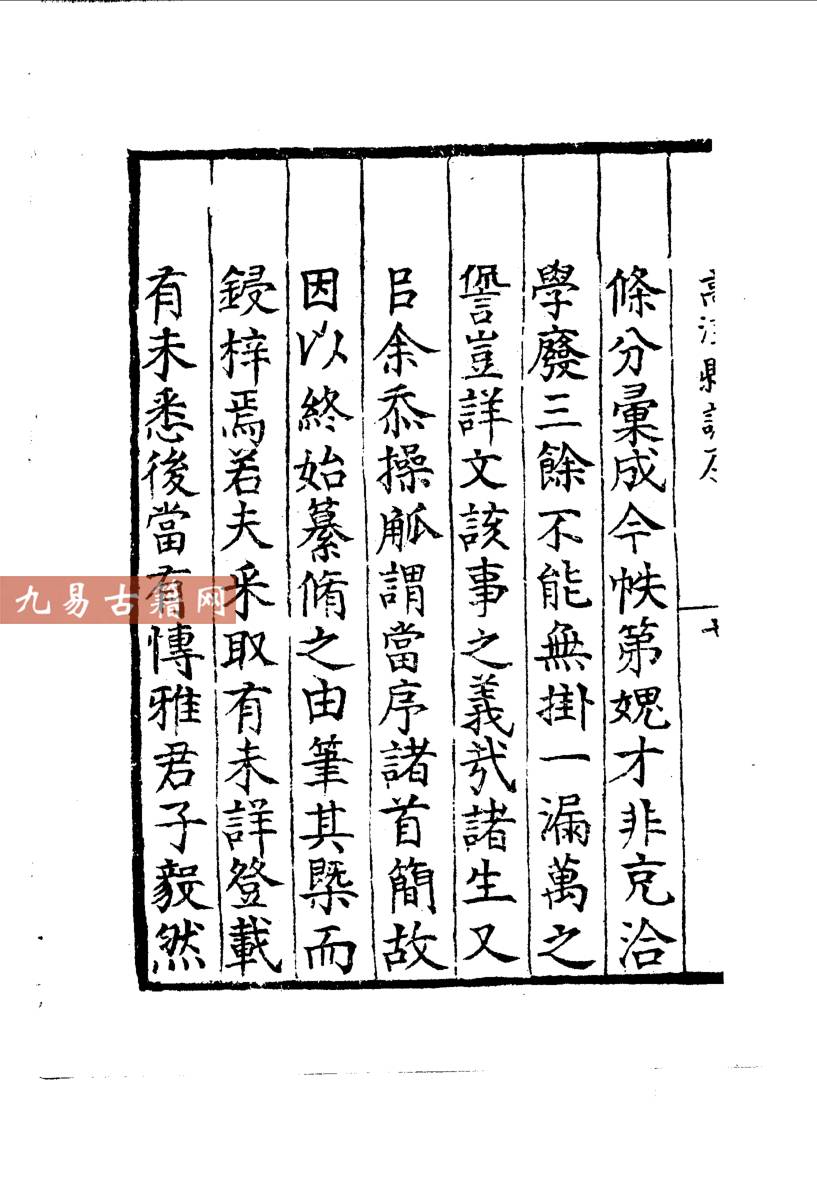 條分彙成今帙第媿才非充洽
學廢三餘不能無掛一漏萬之
諐豈詳文該事之義㢤諸生又
㠯余忝操觚謂當序諸首簡故
因以終始纂脩之由筆其槩而
鋟梓焉若夫采取有未詳登載
有未悉後當有愽雅君子毅然
九易古籍网